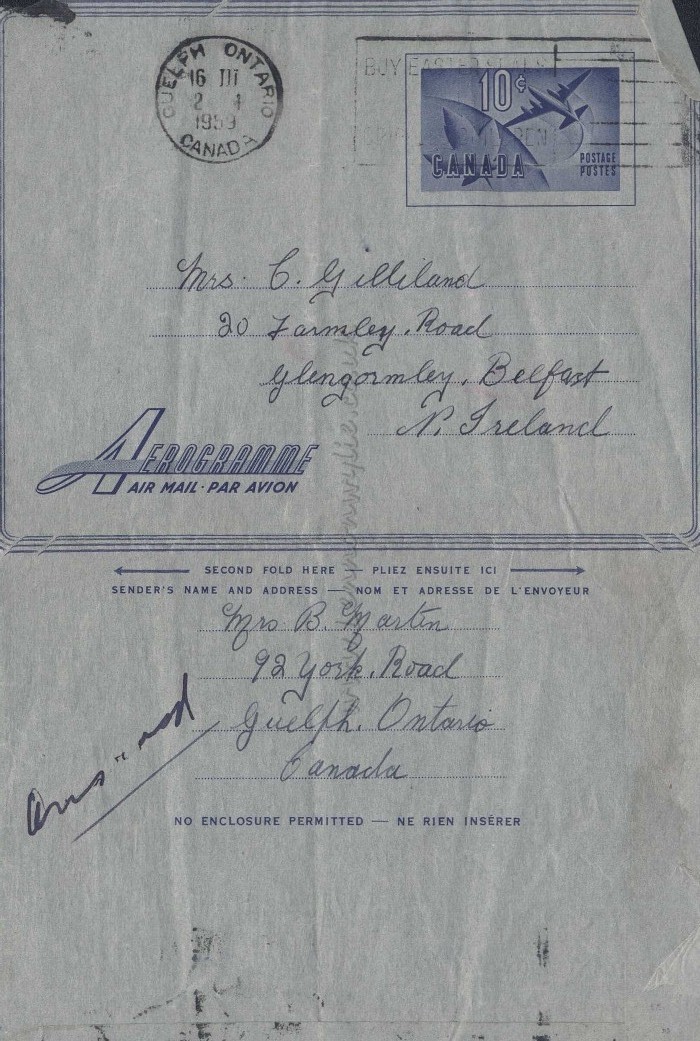 GUELPH ONTARIO
16 III
1959
CANADA
BUY EASTER SEALS
10¢
CANADA
POSTAGE
POSTES
Mrs. C. Gilliland
20 Farmley. Road
Glengormley. Belfast
N. Ireland
AEROGRAMME
AIR MAIL · PAR AVION
SECOND FOLD HERE — PLIEZ ENSUITE ICI
SENDER'S NAME AND ADDRESS — NOM ET ADRESSE DE L'ENVOYEUR
Mrs B. Martin
92 York. Road
Guelph. Ontario
Canada
NO ENCLOSURE PERMITTED — NE RIEN INSÉRER